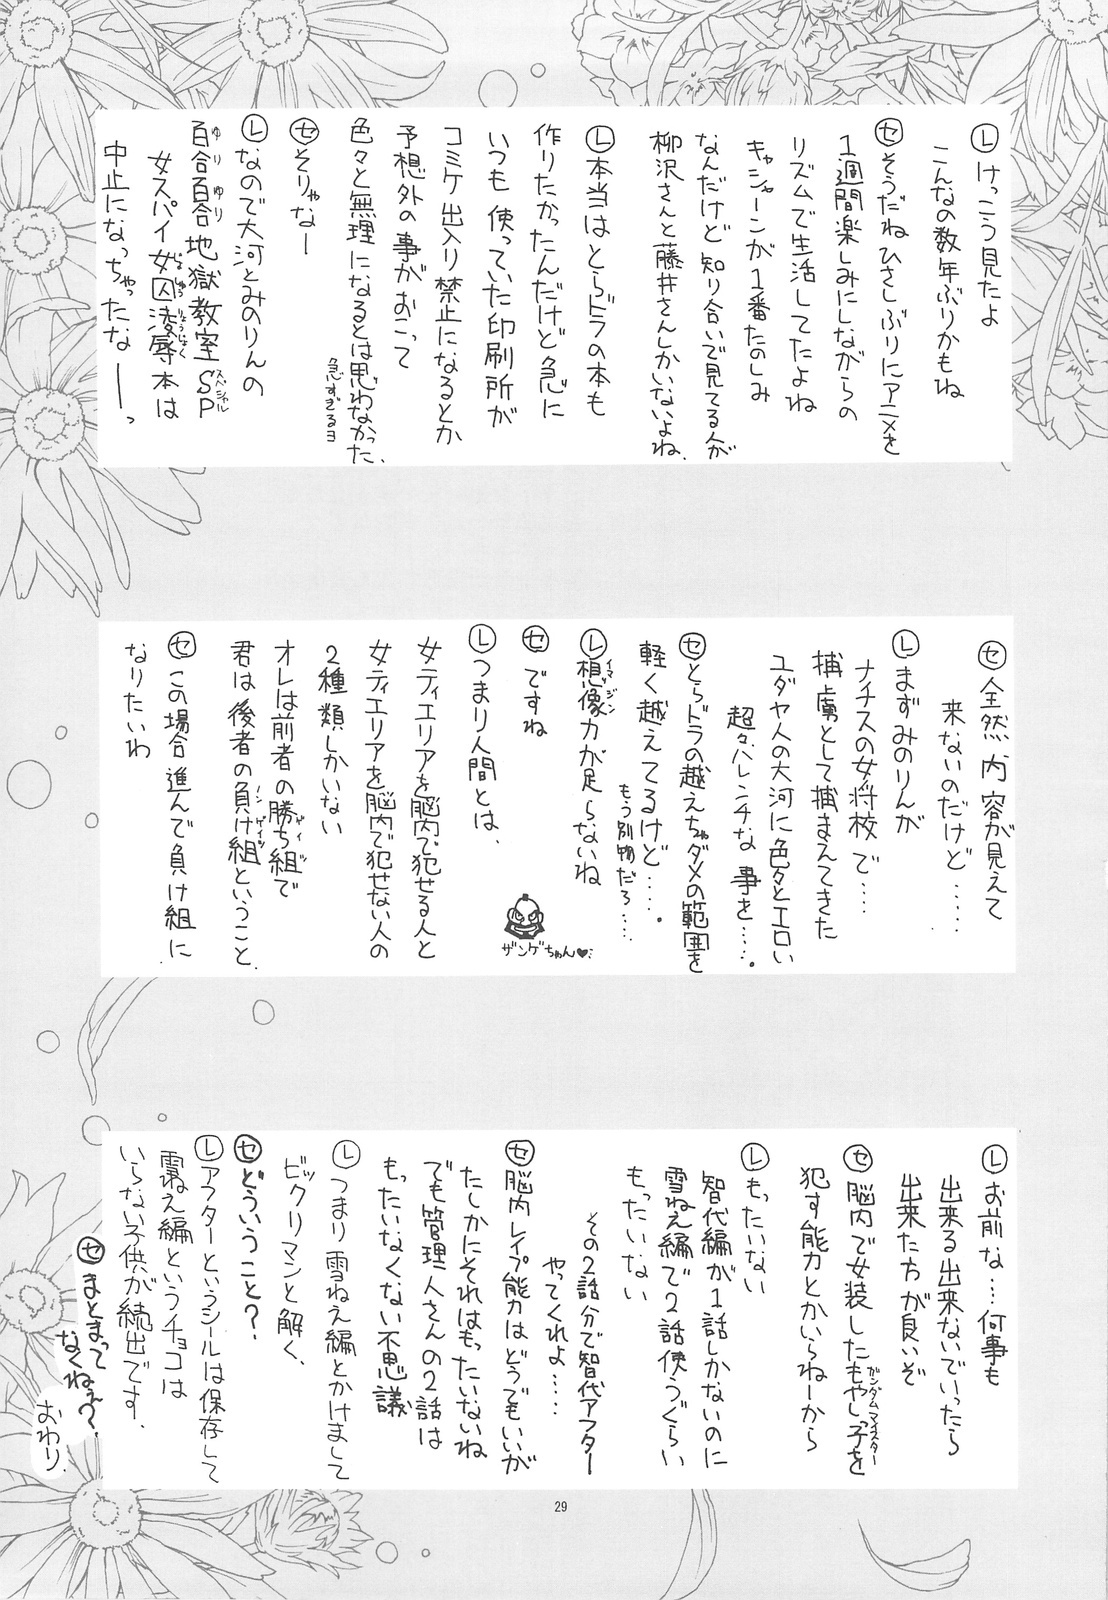 Ⓛけっこう見たよ
こんなの数年ぶりかもね
㋝そうだねひさしぶりにアニメを
1週間楽しみにしながらの
リズムで生活してたよね
キャシャーンが1番たのしみ
なんだけど知り合いで見てる人が
柳沢さんと藤井さんしかいないよね、
Ⓛ本当はとらドラの本も
作りたかったんだけど急に
いつも使っていた印刷所が
コミケ出入り禁止になるとか
予想外の事がおこって
色々と無理になるとは思わなかった、
急すぎるヨ
㋝そりゃなー
Ⓛなので大河とみのりんの
百合百合地獄教室SP
ゆり ゆり スペシャル
女スパイ女囚凌辱本は
じょしゅうりょうじょく
中止になっちゃったなーっ
㋝全然内容が見えて
来ないのだけど……
Ⓛまずみのりんが
ナチスの女将校で…
捕虜として捕まえてきた
ユダヤ人の大河に色々とエロい
超々ハレンチな事を…。
㋝とらドラの越えちゃダメの範囲を
軽く越えてるけど…。
もう別物だろ……
Ⓛ想像力が足らないね
イマジン
㋝ですね
Ⓛつまり人間とは、
女ティエリアを脳内で犯せる人と
女ティエリアを脳内で犯せない人の
2種類しかいない
オレは前者の勝ち組で
君は後者の負け組ということ、
㋝この場合進んで負け組に
なりたいわ
ザンゲちゃん♥
Ⓛお前な…何事も
出来る出来ないでいったら
出来た方が良いぞ
㋝脳内で女装したもやしっ子を
ガンダムマイスター
犯す能力とかいらねーから
Ⓛもったいない
智代編が1話しかないのに
雪ねえ編で2話使つぐらい
もったいない
その2話分で智代アフター
やってくれよ……
㋝脳内レイプ能力はどうでもいいが
たしかにそれはもったいないね
でも管理人さんの2話は
もったいなくない不思議
Ⓛつまり雪ねえ編とかけまして
ビックリマンと解く、
㋝どういうこと?
Ⓛアフターというシールは保存して
雪ねえ編というチョコは
いらない子供が続出です、
㋝まとまって
なくねぇ?
おわり、
29